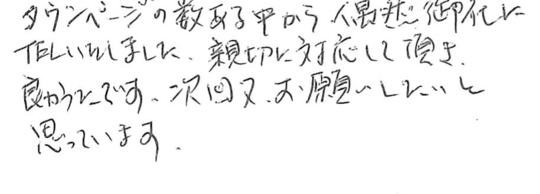 タウンページの数ある中から偶然御社に
TELいたしました、親切に対応して頂き、
良かったです。次回又、お願いしたいと
思っています、